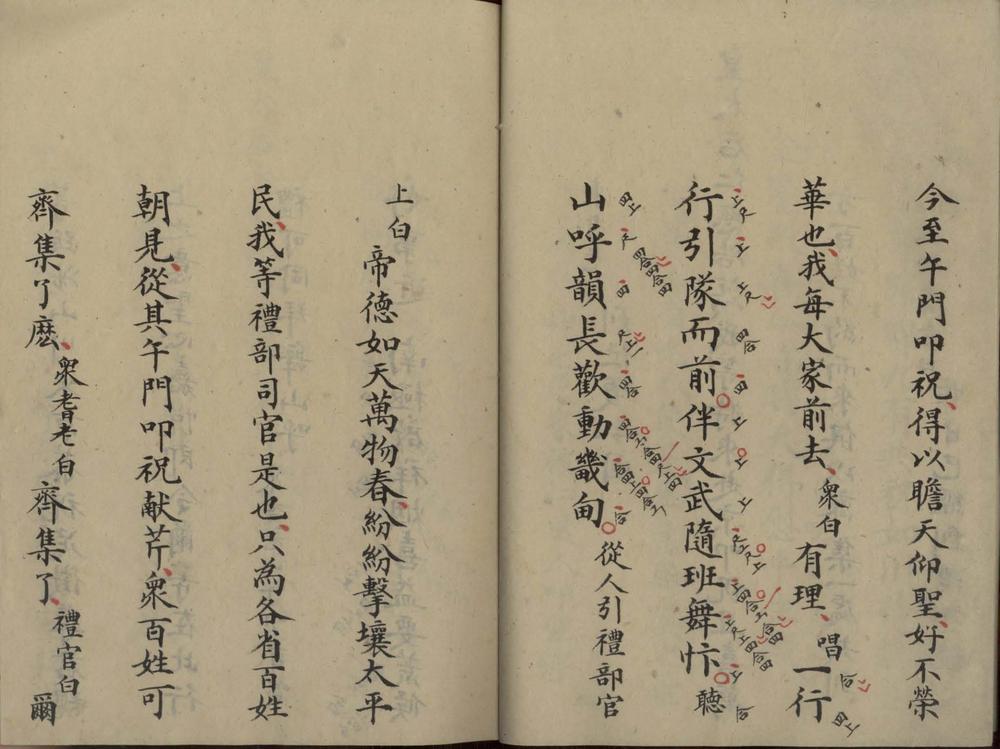 今至午門叩祝得以瞻天仰聖好不榮
華也我每大家前去衆白有理唱一行
行引隊而前伴文武隨班舞忭聽
山呼韻長歡動畿甸從人引禮部官
上白帝德如天萬物春紛紛擊壤太平
民我等禮部司官是也只為各省百姓
朝見從其午門叩祝献芹衆百姓可
齊集了麽衆耆老白齊集了禮官白爾